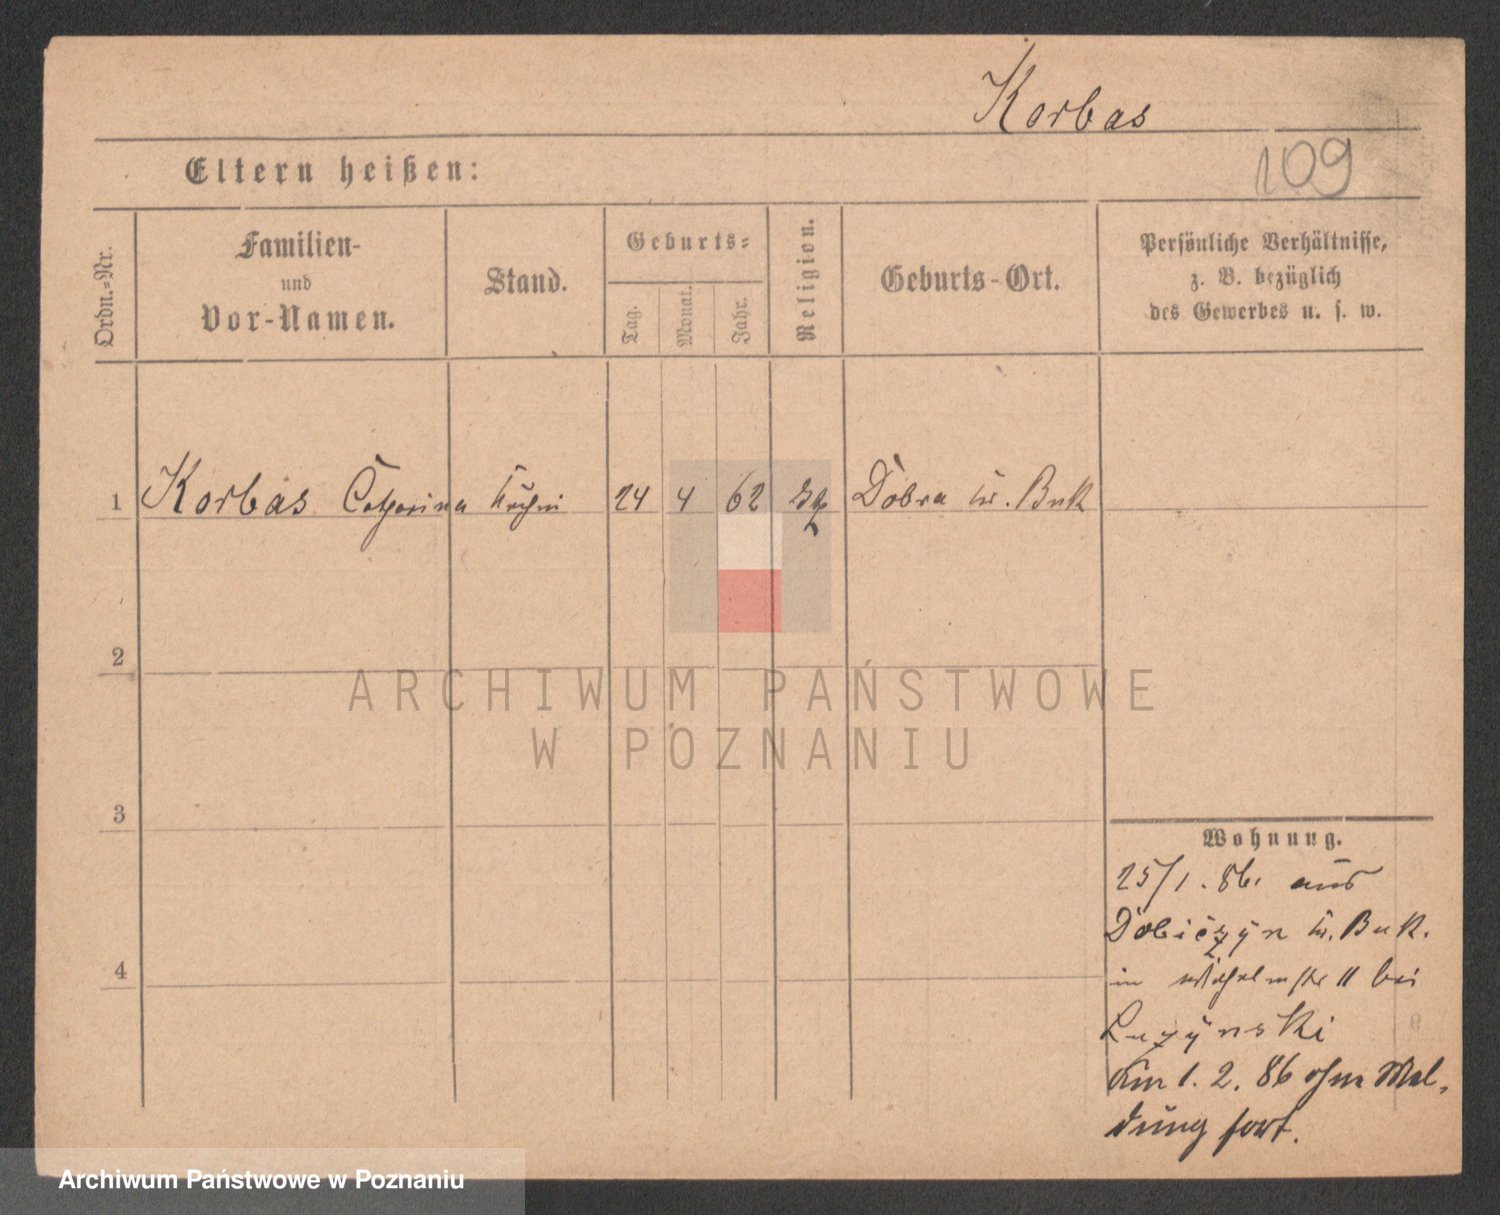 Korbas
109
Eltern heißen:
Ordn.-Nr.
Familien-
und
Vor-Namen.
Stand.
Geburts-
Tag.
Monat.
Jahr.
Religion.
Geburts-Ort.
Persönliche Verhältnisse,
z. B. bezüglich
des Gewerbes u. s. w.
1 Korbas Catharina 24 4 62 Dobra Kr. Buk
2
ARCHIWUM PAŃSTWOWE
W POZNANIU
3
Wohnung.
25/1. 86. aus
Kr. Buk.
in 11 bei
Luzynski
Am 1. 2. 86 ohne Mel-
dung fort.
4
Archiwum Państwowe w Poznaniu